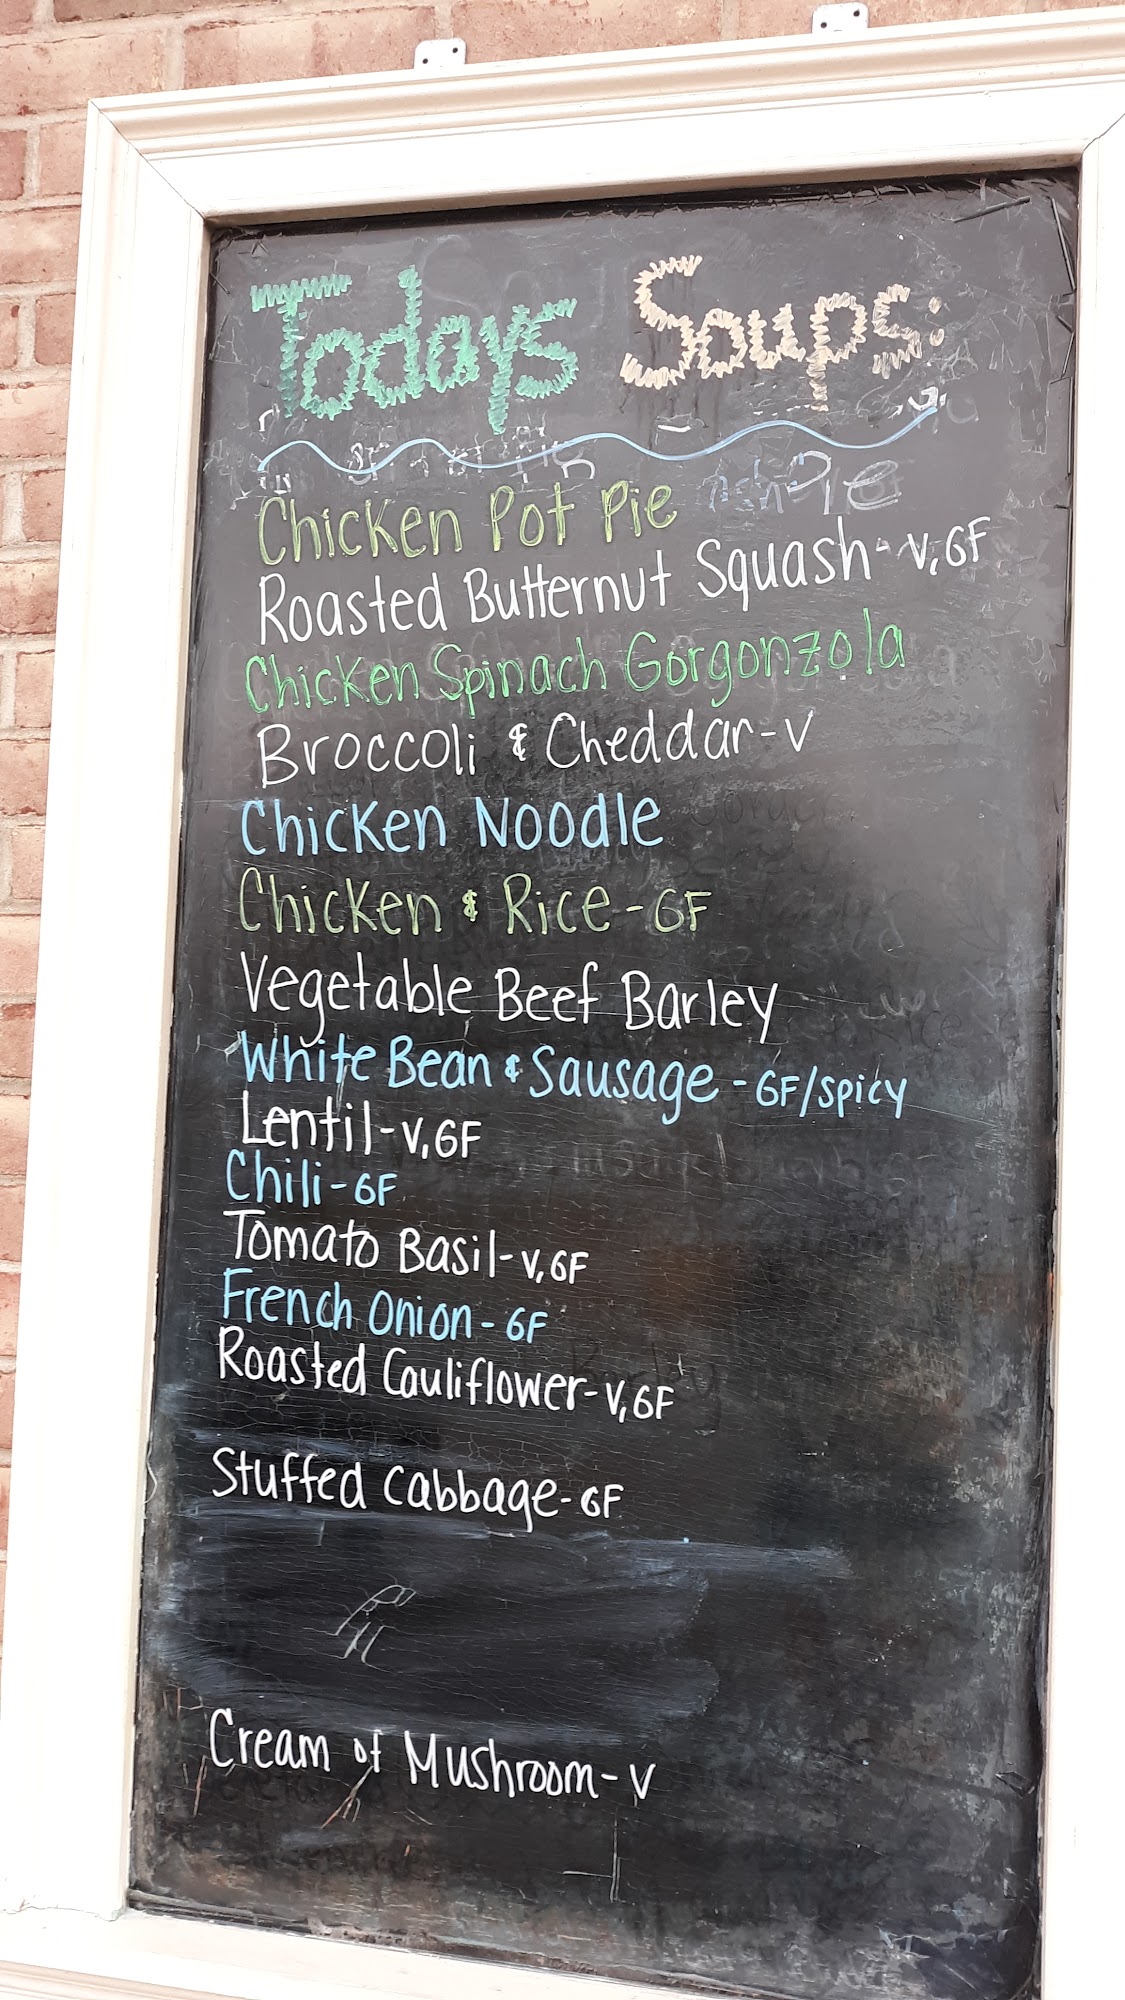 Todays Soups:
Chicken Pot Pie
Roasted Butternut Squash - V, GF
Chicken Spinach Gorgonzola
Broccoli & Cheddar - V
Chicken Noodle
Chicken & Rice - GF
Vegetable Beef Barley
White Bean & Sausage - GF/spicy
Lentil - V, GF
Chili - GF
Tomato Basil - V, GF
French Onion - GF
Roasted Cauliflower - V, GF
Stuffed Cabbage - GF
Cream of Mushroom - V